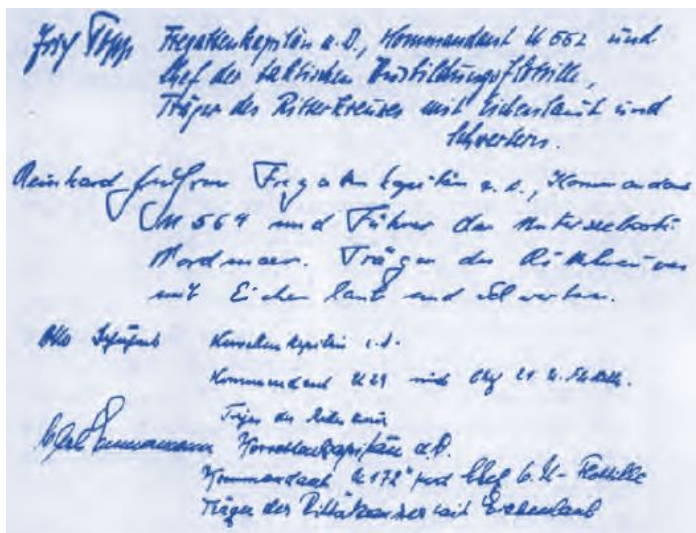 Erich Topp Fregattenkapitän a.D., Kommandant U 552 und
Chef der taktischen Ausbildungsflottille,
Träger des Ritterkreuzes mit Eichenlaub und
Schwertern.
Reinhard Suhren Fregattenkapitän a.D., Kommandant
U 564 und Führer der Unterseeboote
Nordmeer. Träger des Ritterkreuzes
mit Eichenlaub und Schwertern.
Otto Schuhart Korvettenkapitän a.D.
Kommandant U 29 und Chef 21. U-Flottille.
Träger des Ritterkreuzes
Carl Emmermann Korvettenkapitän a.D.
Kommandant "U 172" und Chef 6. U-Flottille
Träger des Ritterkreuzes mit Eichenlaub